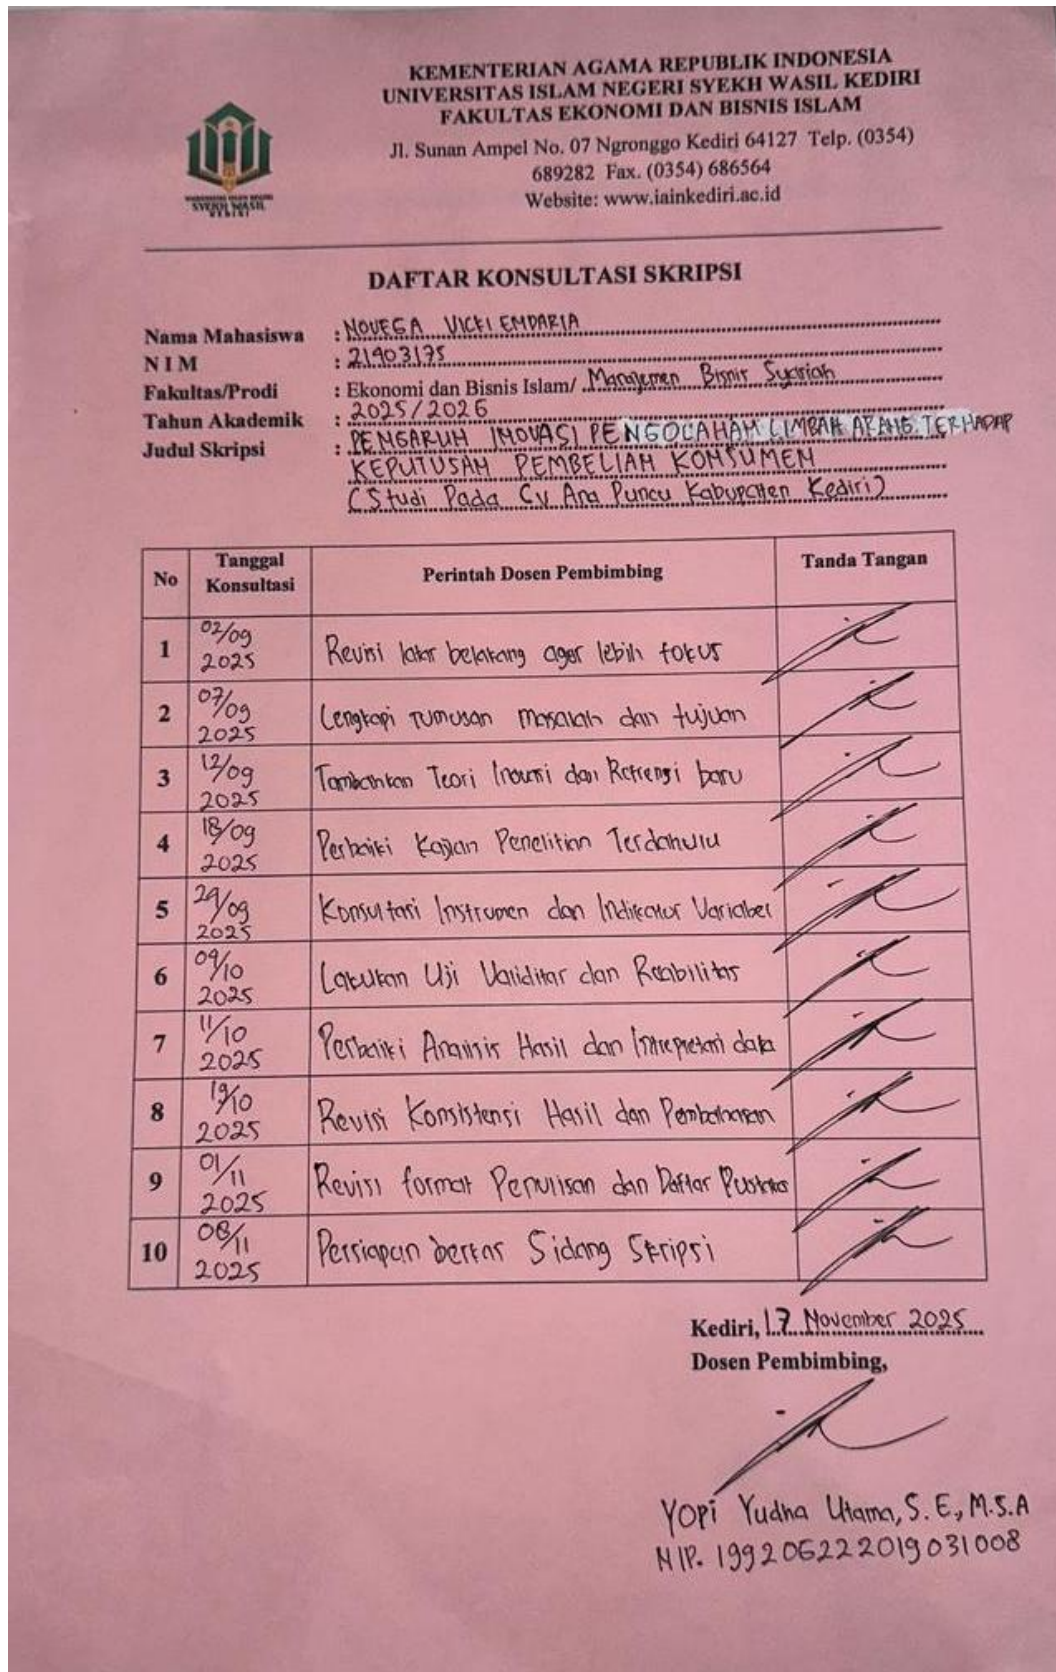 KEMENTERIAN AGAMA REPUBLIK INDONESIA
UNIVERSITAS ISLAM NEGERI SYEKH WASIL KEDIRI
FAKULTAS EKONOMI DAN BISNIS ISLAM
Jl. Sunan Ampel No. 07 Ngronggo Kediri 64127 Telp. (0354)
689282 Fax. (0354) 686564
Website: www.iainkediri.ac.id
SYEKH WASIL
KEDIRI
DAFTAR KONSULTASI SKRIPSI
Nama Mahasiswa : NOVEGA VICKI EMDARIA
NIM : 21903175
Fakultas/Prodi : Ekonomi dan Bisnis Islam/ Manajemen Bisnis Syariah
Tahun Akademik : 2025/2026
Judul Skripsi : PENGARUH INOVASI PENGOLAHAN LIMBAH ARANG TERHADAP
KEPUTUSAN PEMBELIAN KONSUMEN
(Studi Pada CV Ana Puncu Kabupaten Kediri)
No Tanggal Konsultasi Perintah Dosen Pembimbing Tanda Tangan
1 02/09 2025 Revisi latar belakang agar lebih fokus
2 07/09 2025 Lengkapi rumusan masalah dan tujuan
3 12/09 2025 Tambahkan Teori Inovasi dan Refrensi baru
4 18/09 2025 Perbaiki Kajian Penelitian Terdahulu
5 29/09 2025 Konsultasi Instrumen dan Indikator Variabel
6 09/10 2025 Lakukan Uji Validitas dan Reabilitas
7 11/10 2025 Perbaiki Analisis Hasil dan Intrepretasi data
8 19/10 2025 Revisi Konsistensi Hasil dan Pembahasan
9 01/11 2025 Revisi format Penulisan dan Daftar Pustaka
10 08/11 2025 Persiapan berkas Sidang Skripsi
Kediri, 17 November 2025
Dosen Pembimbing,
Yopi Yudha Utama, S.E., M.S.A
NIP. 199206222019031008